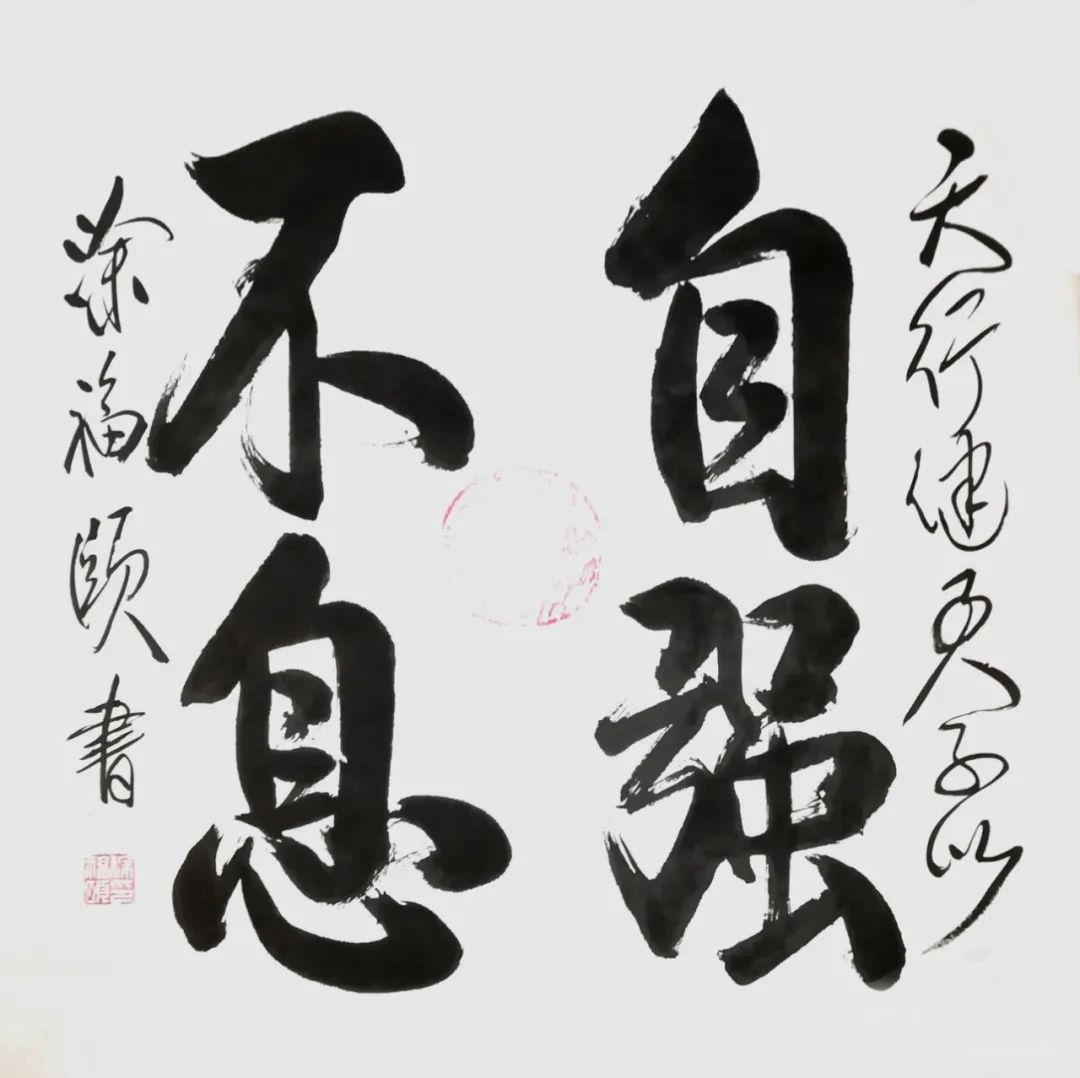 天行健君子以
自强
不息
徐福颐書